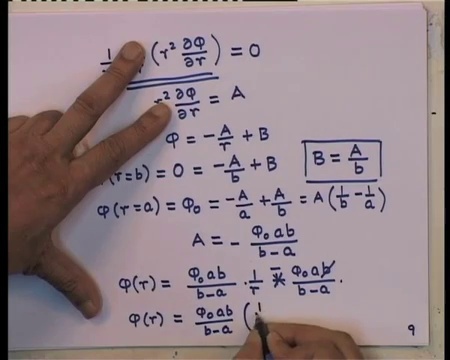 (r² ∂φ/∂r) = 0
r² ∂φ/∂r = A
φ = -A/r + B
φ(r=b) = 0 = -A/b + B
B = A/b
φ(r=a) = φ₀ = -A/a + A/b = A(1/b - 1/a)
A = - φ₀ab/b-a
φ(r) = φ₀ab/b-a · 1/r - φ₀ab/b-a .
φ(r) = φ₀ab/b-a (
9